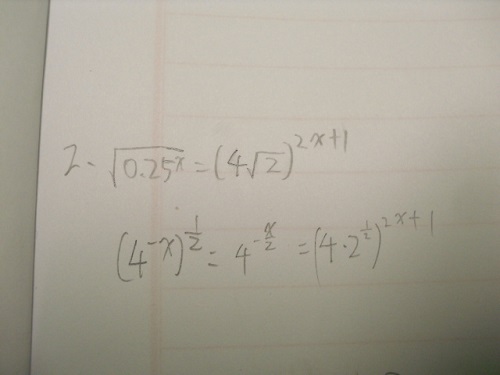 2. √(0.25ˣ) = (4√2)^(2x+1)
(4^(-x))^(1/2) = 4^(-x/2) = (4·2^(1/2))^(2x+1)